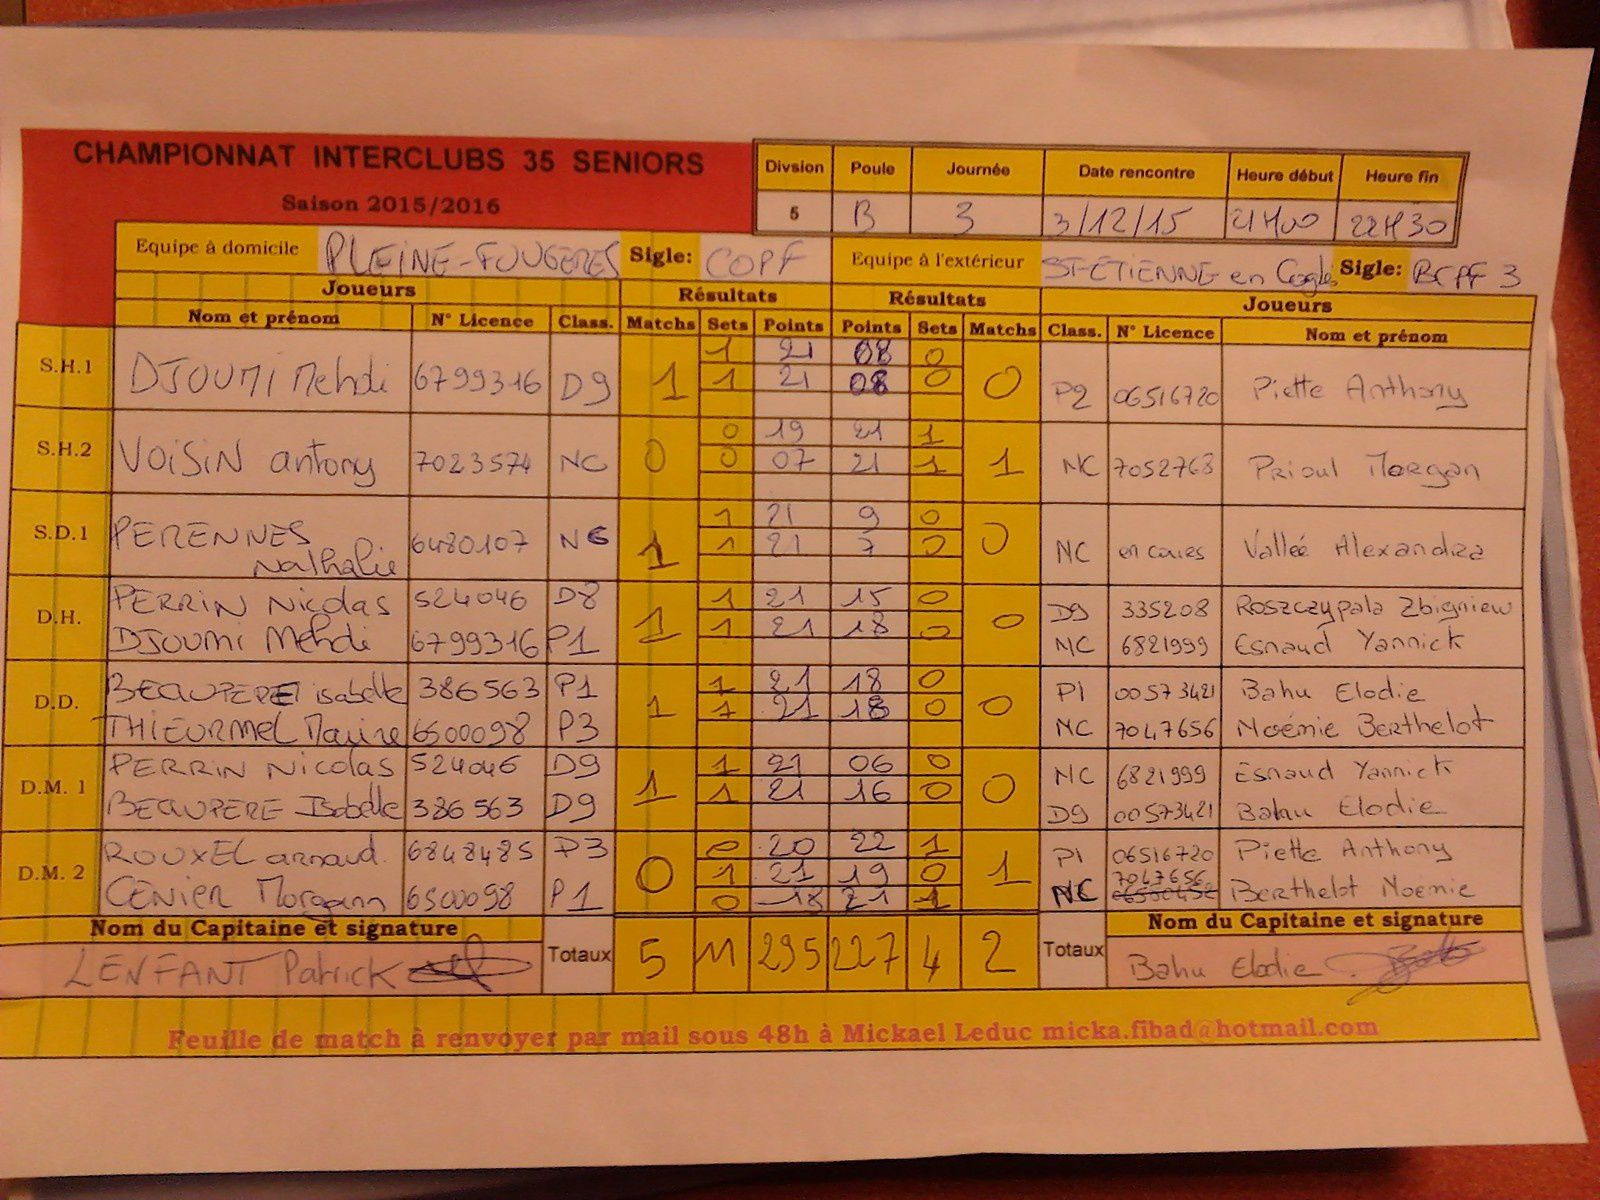 CHAMPIONNAT INTERCLUBS 35 SENIORS
Saison 2015/2016
Divsion Poule Journée Date rencontre Heure début Heure fin
5 B 3 3/12/15 21H00 22H30
Equipe à domicile PLEINE-FOUGERES Sigle: COPF Equipe à l'extérieur ST-ETIENNE en Cogles Sigle: BCPF 3
Joueurs Résultats Résultats Joueurs
Nom et prénom N° Licence Class. Matchs Sets Points Points Sets Matchs Class. N° Licence Nom et prénom
S.H.1 DJOUMI Mehdi 6799316 D9 1 1 21 08 0 0 P2 06516720 Piette Anthony
1 21 08 0
S.H.2 VOISIN antony 7023574 NC 0 0 19 21 1 1 NC 7052763 Prioul Morgan
0 07 21 1
S.D.1 PERENNES Nathalie 6480107 NC 1 1 21 9 0 0 NC en cours Valleé Alexandra
1 21 7 0
D.H. PERRIN Nicolas 524046 D8 1 1 21 15 0 0 D9 335208 Roszczypala Zbigniew
DJOUMI Mehdi 6799316 P1 1 21 18 0 NC 6821999 Esnaud Yannick
D.D. BEAUPERE isabelle 386563 P1 1 1 21 18 0 0 P1 00573421 Bahu Elodie
THIEURMEL Marine 6500098 P3 1 21 18 0 NC 7047656 Noémie Berthelot
D.M. 1 PERRIN Nicolas 524046 D9 1 1 21 06 0 0 NC 6821999 Esnaud Yannick
BEAUPERE Isabelle 386563 D9 1 21 16 0 D9 00573421 Bahu Elodie
D.M. 2 ROUXEL arnaud. 6848485 P3 0 0 20 22 1 1 P1 06516720 Piette Anthony
1 21 19 0
CENIER Morgann 6500098 P1 0 18 21 1 NC 7047656 Berthelot Noémie
Nom du Capitaine et signature Totaux 5 11 295 227 4 2 Totaux Nom du Capitaine et signature
LENFANT Patrick Bahu Elodie
Feuille de match à renvoyer par mail sous 48h à Mickael Leduc micka.fibad@hotmail.com